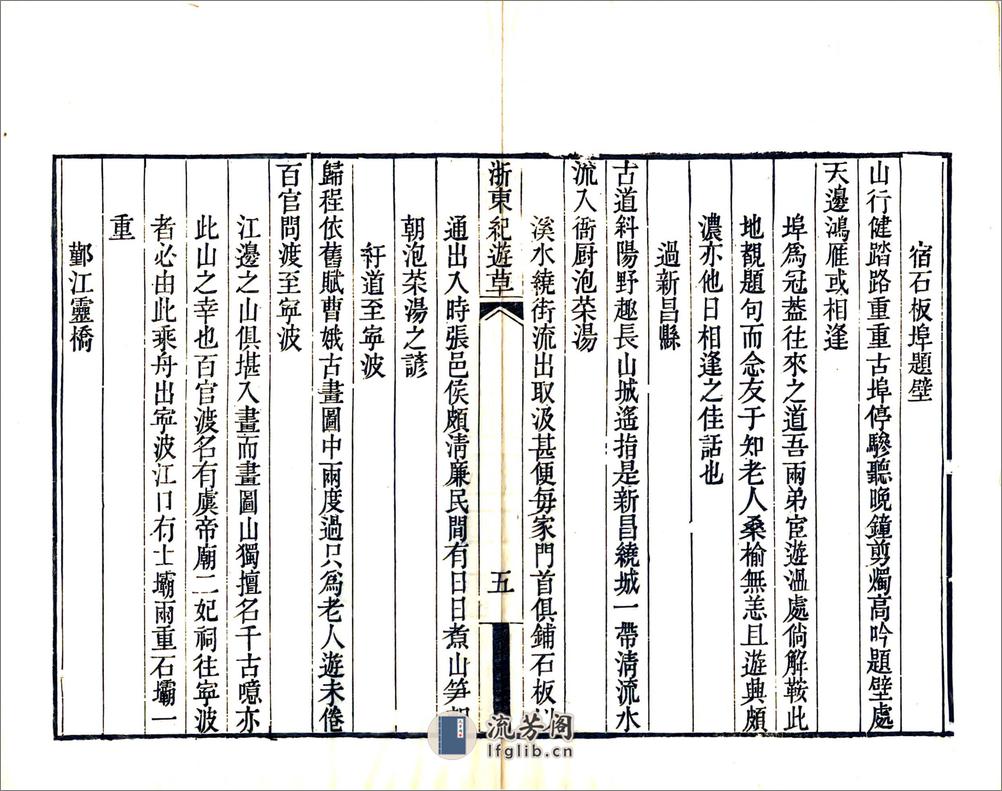 宿石板埠題壁
山行健踏路重重古埠停驂聽晚鐘剪燭高吟題壁處
天邊鴻雁或相逢
埠爲冠蓋往來之道吾兩弟宦遊溫處倘解鞍此
地覩題句而念友于知老人桑榆無恙且遊興頗
濃亦他日相逢之佳話也
過新昌縣
古道斜陽野趣長山城遙指是新昌繞城一帶淸流水
流入衙厨泡茶湯
溪水繞街流出取汲甚便每家門首俱鋪石板以
浙東紀遊草
五
通出入時張邑侯頗淸廉民間有日日煮山笋朝
朝泡茶湯之諺
紆道至寧波
歸程依舊賦曹娥古畫圖中兩度過只爲老人遊未倦
百官問渡至寧波
江邊之山俱堪入畫而畫圖山獨擅名千古噫亦
此山之幸也百官渡名有虞帝廟二妃祠往寧波
者必由此乘舟出寧波江口有土壩兩重石壩一
重
鄞江靈橋
流芳阁
lfglib.cn